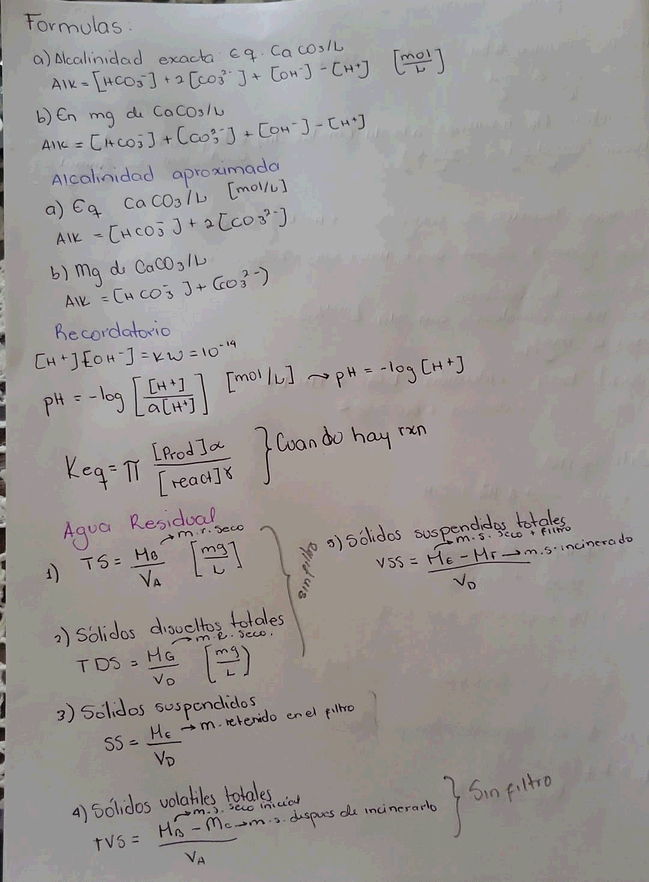 Formulas:
a) Alcalinidad exacta Eq. CaCO3/L
Alk = [HCO3-] + 2[CO3 2-] + [OH-] - [H+] [mol/L]
b) En mg de CaCO3/L
Alk = [HCO3-] + [CO3 2-] + [OH-] - [H+]
Alcalinidad aproximada
a) Eq CaCO3/L [mol/L]
Alk = [HCO3-] + 2[CO3 2-]
b) Mg de CaCO3/L
Alk = [HCO3-] + (CO3 2-)
Recordatorio
[H+][OH-] = KW = 10^-14
pH = -log [[H+]/a[H+]] [mol/L] → pH = -log[H+]
Keq = π [Prod]α/[react]γ } Cuando hay rxn
Agua Residual
1) TS = MB/VA [mg/L] → m.r. seco
2) Sólidos disueltos totales
TDS = MG/VD [mg/L) → m.R. seco.
3) Sólidos suspendidos
SS = ME/VD → m. retenido en el filtro
4) Sólidos volatiles totales
TVS = MB - MC/VA → m.s. seco inicial → m.s. despues de incinerarlo } Sin filtro
5) Sólidos suspendidos totales
VSS = ME - MF/VD → m.s. seco + filtro → m.s. incinerado